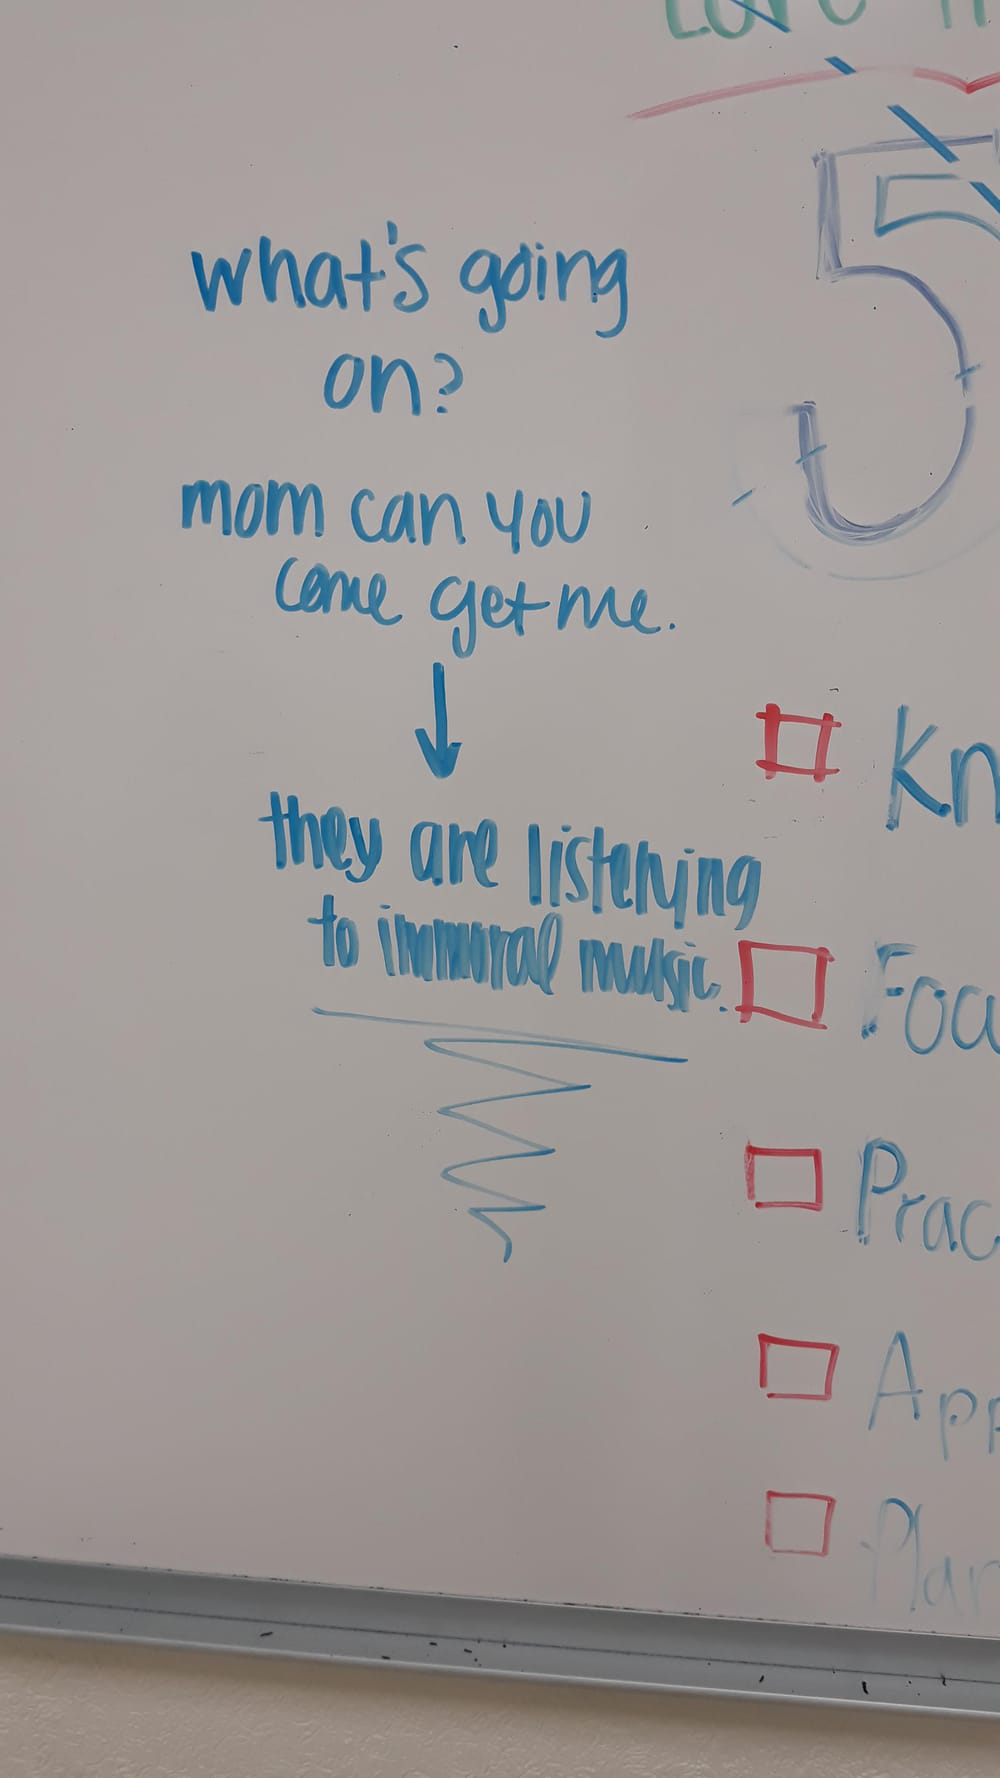 what's going
on?
mom can you
come get me.
they are listening
to immoral music.
5
Kn
Foc
Prac
App
Plan